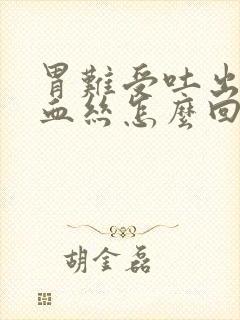 胃難受吐出
血絲怎麼回
胡金磊